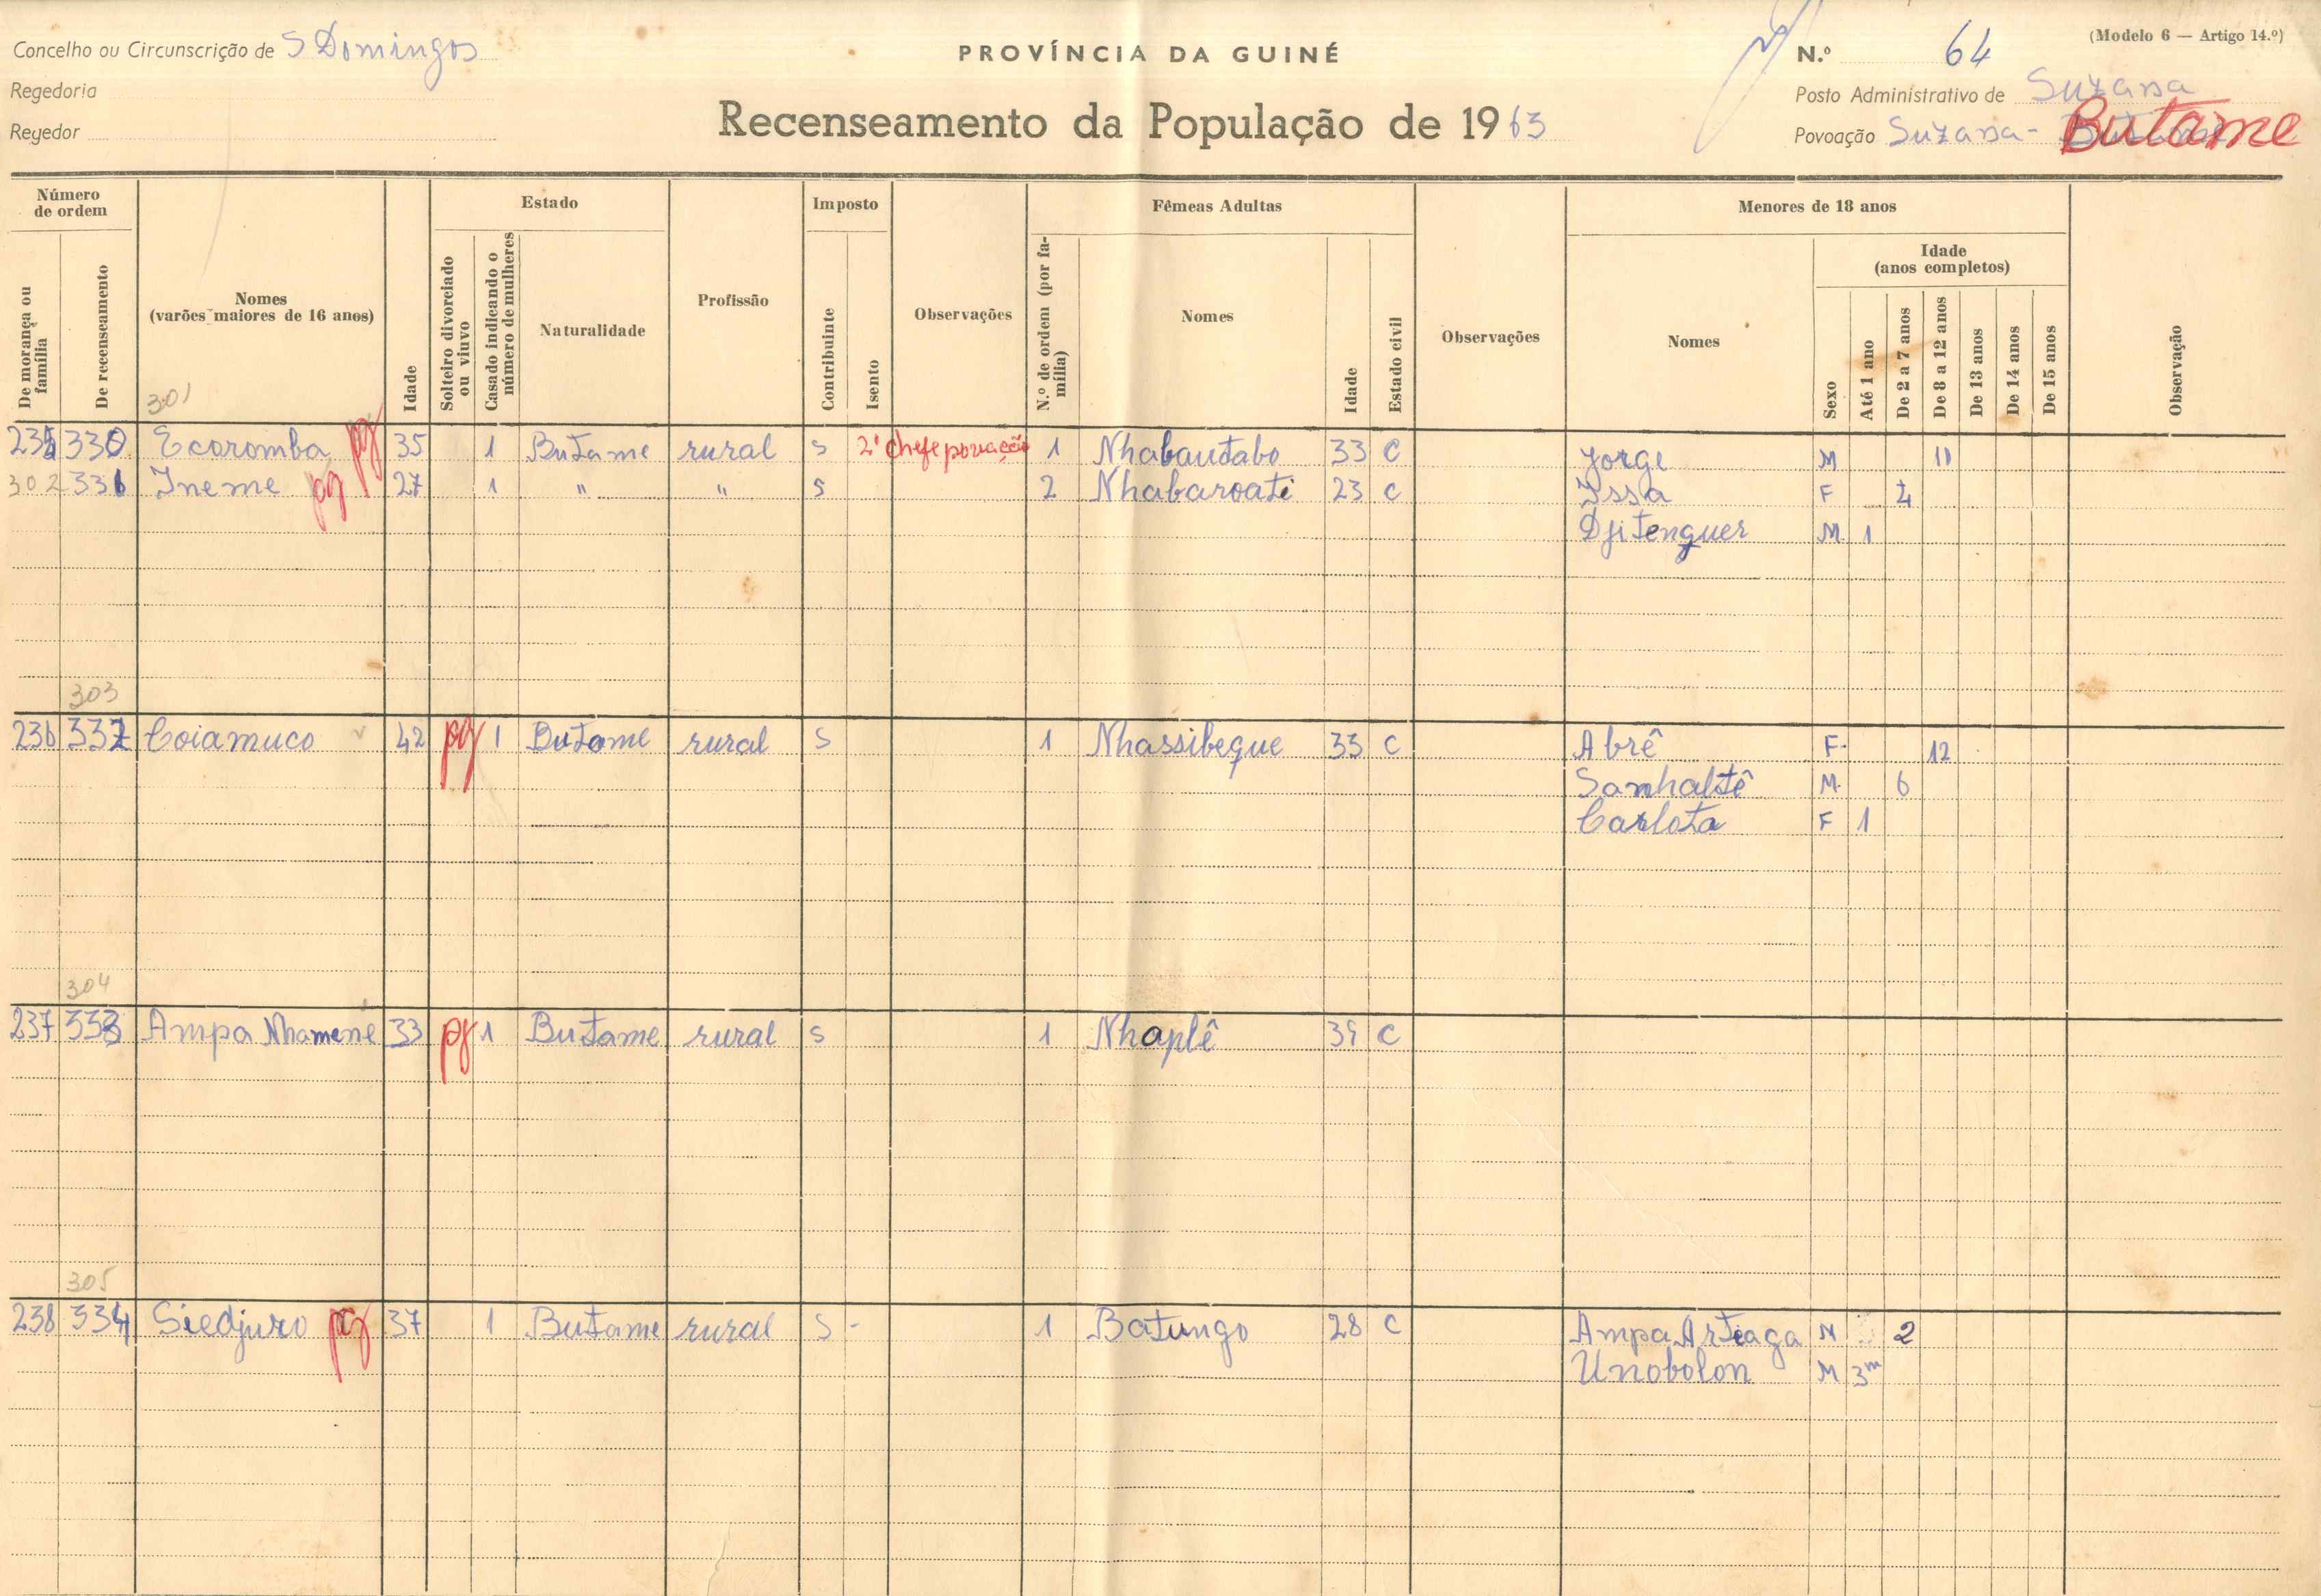 Concelho ou Circunscrição de S Domingos
PROVÍNCIA DA GUINÉ
N.º 64
(Modelo 6 — Artigo 14.º)
Regedoria
Posto Administrativo de Suzana
Regedor
Recenseamento da População de 1963
Povoação Suzana - Butame
Número de ordem
Estado
Imposto
Fêmeas Adultas
Menores de 18 anos
De morança ou família
De recenseamento
Nomes (varões maiores de 16 anos)
Idade
Solteiro divorciado ou viuvo
Casado indicando o número de mulheres
Naturalidade
Profissão
Contribuinte
Isento
Observações
N.º de ordem (por família)
Nomes
Idade
Estado civil
Observações
Nomes
Sexo
Idade (anos completos)
Até 1 ano
De 2 a 7 anos
De 8 a 12 anos
De 13 anos
De 14 anos
De 15 anos
Observação
301
235 330 Ecoromba pg 35 1 Butame rural S 2º chefe povoação 1 Nhabautabo 33 C Jorge M 11
302 331 Ineme pg 27 1 " " S 2 Nhabaroati 23 C Issa F 4
Djitenguer M 1
303
236 332 Coiamuco 42 pg 1 Butame rural S 1 Nhassibeque 33 C Abrê F 12
Sanhaltê M 6
Carlota F 1
304
237 333 Ampa Nhamene 33 pg 1 Butame rural S 1 Nhaplê C
305
238 334 Siedjuro pg 37 1 Butame rural S - 1 Batungo 28 C Ampa Arteaga M 2
Unobolon M 3m